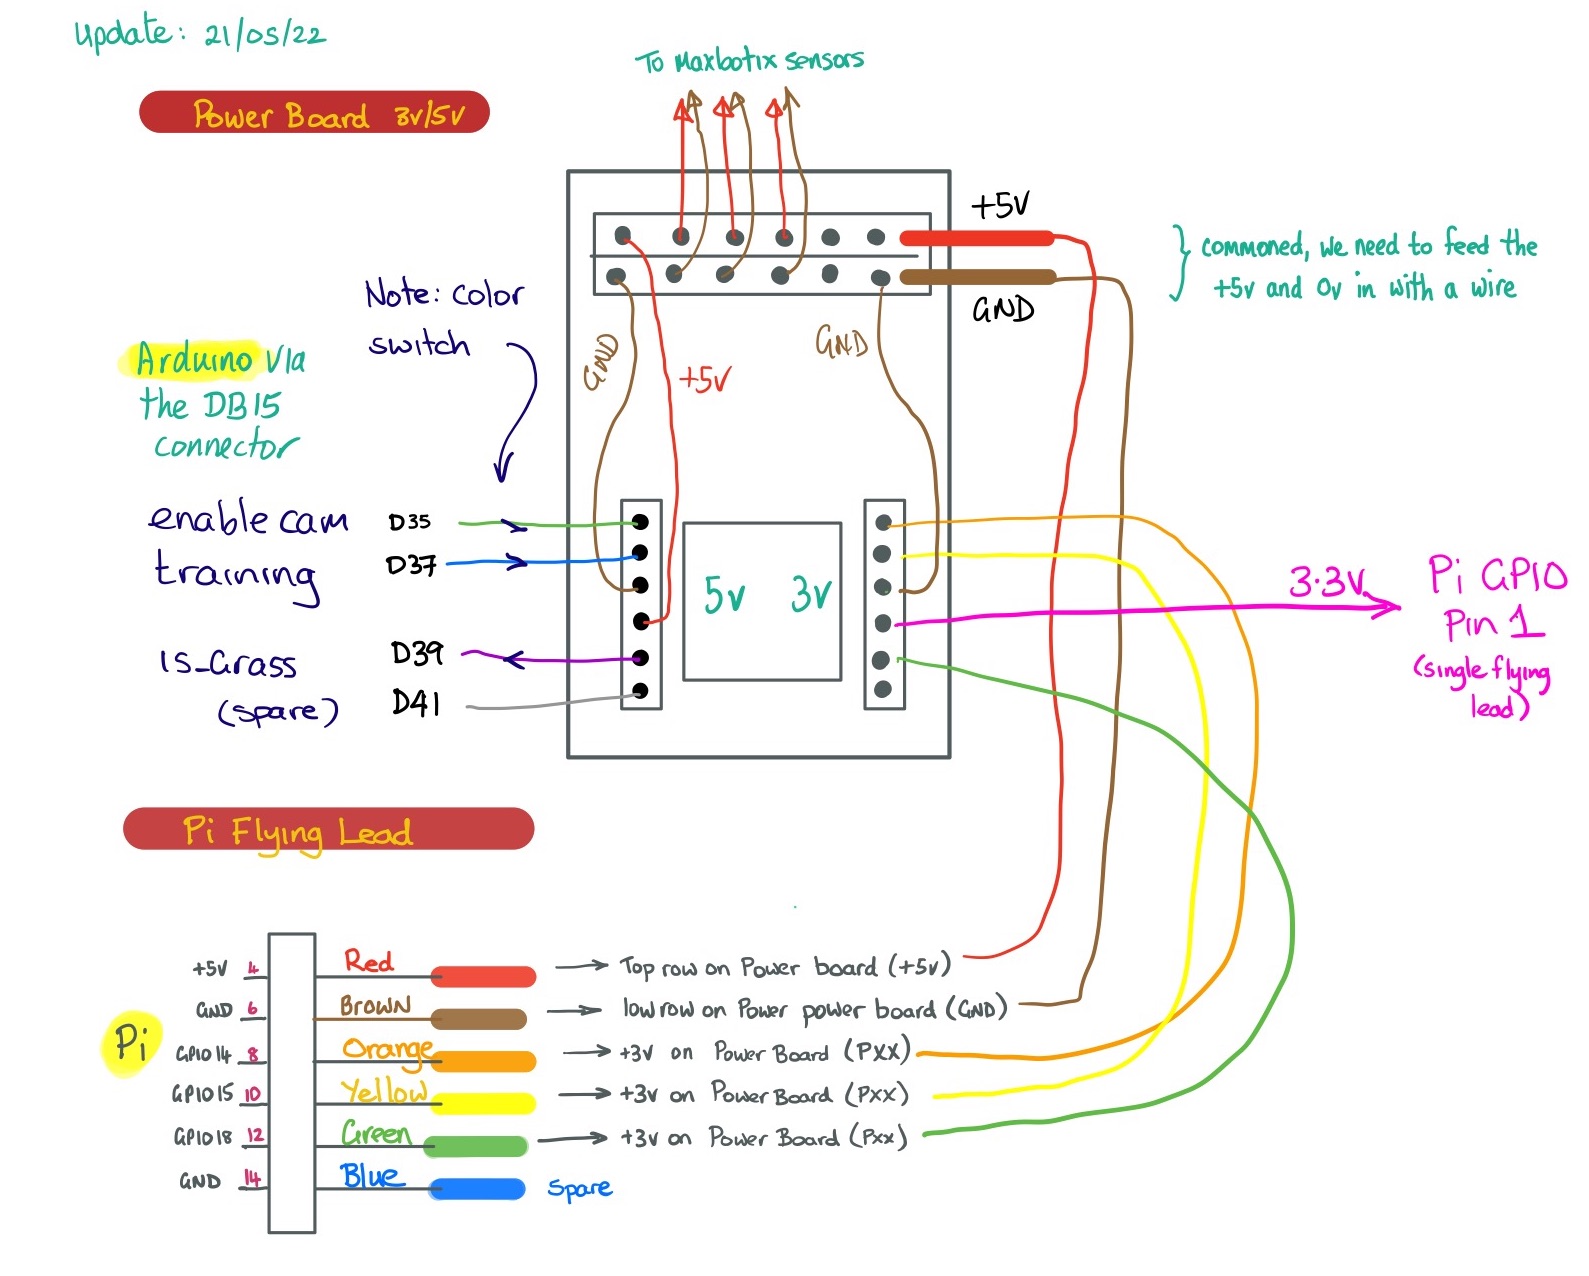 Update: 21/05/22
To Maxbotix sensors
Power Board 3v/5v
+5V
commoned, we need to feed the
+5v and 0v in with a wire
GND
Note: color
switch
GND
+5V
GND
Arduino via
the DB15
connector
enable cam D35
training D37
5v 3v
3.3v
Pi GPIO
Pin 1
(single flying
lead)
IS_Grass D39
(spare) D41
Pi Flying Lead
Pi
+5V 4 Red → Top row on Power board (+5v)
GND 6 BROWN → low row on Power power board (GND)
GPIO14 8 Orange → +3v on Power Board (PXX)
GPIO15 10 Yellow → +3v on Power Board (Pxx)
GPIO18 12 Green → +3v on Power Board (Pxx)
GND 14 Blue Spare